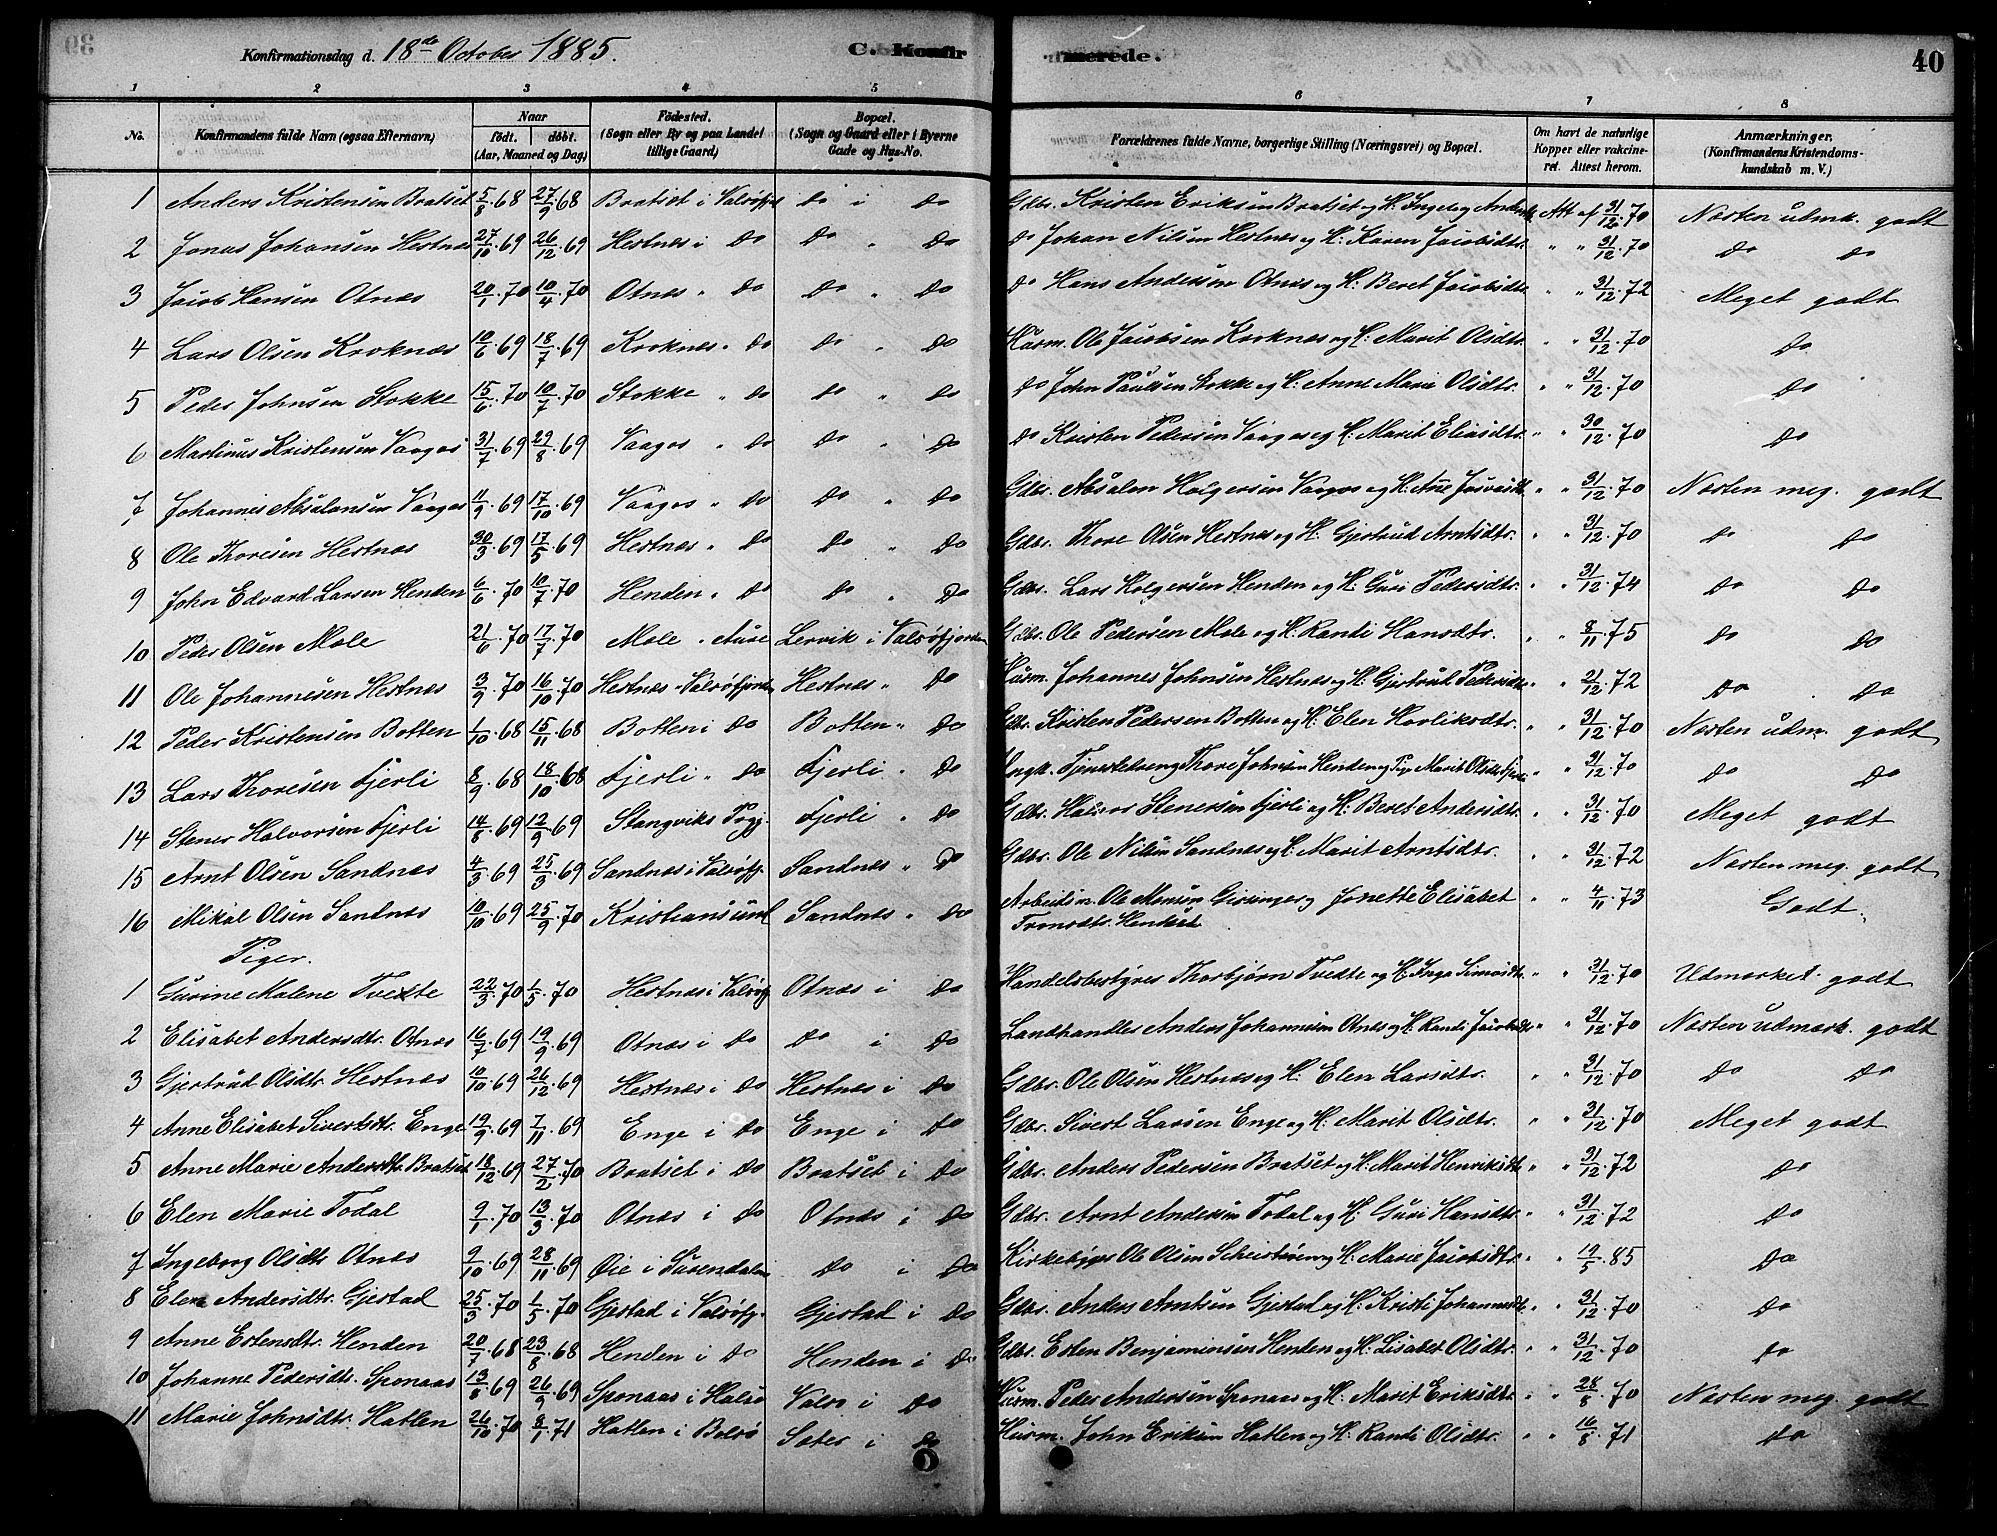 39
Konfirmationsdag d. 18de October 1885. C. Konfirmerede. 40
1 2 3 4 5 6 7 8
No. Konfirmandens fulde Navn (ogsaa Efternavn) Naar født. døbt. (Aar, Maaned og Dag) Fødested. (Sogn eller By og paa Landet tillige Gaard) Bopæl. (Sogn og Gaard eller i Byerne Gade og Hus-No. Forældrenes fulde Navne, borgerlige Stilling (Næringsvei) og Bopæl. Om havt de naturlige Kopper eller vakcineret. Attest herom. Anmærkninger. (Konfirmandens Kristendomskundskab m. V.)
1 Anders Kristensen Bratset 5/8.68 27/9.68 Bratset i Valsøfj. do i do Gdbr. Kristen Eriksen Bratset og H. Att af 31/12.70 Næsten udmk. godt
2 Jonas Johansen Hestnæs 27/10.69 26/12.69 Hestnæs i do do " do do Johan Nilsen Hestnes og H. Karen Jacobsdtr. " " 31/12.70 do do
3 Jacob Hansen Otnæs 20/1.70 10/4.70 Otnæs " do do " do do Hans Andersen Otnæs og H. Beret Jacobsdtr. " " 31/12.72 Meget godt
4 Lars Olsen Kroknæs 10/6.69 18/7.69 Kroknæs " do do " do Husm. Ole Jacobsen Kroknæs og H. Marit Olsdtr. " " 31/12.70 do
5 Peder Johnsen Stokke 15/6.70 10/7.70 Stokke " do do " do do John Paulsen Stokke og H. Anne Marie Olsdtr. " " 31/12.70 do
6 Martinus Kristensen Vaagos 31/7.69 29/8.69 Vaagos " do do " do do Kristen Pedersen Vaagos og H. Marit Eliasdtr. " " 30/12.70 do
7 Johannes Absalonsen Vaagos 11/9.69 17/10.69 Vaagos " do do " do Gdbr. Absalon Holgersen Vaagos og H. Ane " " 31/12.70 Næsten meg. godt
8 Ole Thoresen Hestnæs 30/3.69 17/5.69 Hestnæs " do do " do Gdbr. Thore Olsen Hestnes og H. Gjertrud Arntsdtr. " " 31/12.70 do do
9 John Edvard Larsen Henden 6/6.70 10/7.70 Henden " do do " do Gdbr. Lars Holgersen Henden og H. Guri Pedersdtr. " " 31/12.74 do do
10 Peder Olsen Mole 21/6.70 17/7.70 Mole " Aure Lervik i Valsøfjorden Gdbr. Ole Pedersen Mole og H. Randi Hansdtr. " " 8/11.75 do do
11 Ole Johannesen Hestnæs 3/9.70 16/10.70 Hestnæs " Valsøfjorden Hestnæs " do Husm. Johannes Johnsen Hestnes og H. Gjertrud Pedersdtr. " " 21/12.72 do do
12 Peder Kristensen Botten 1/10.68 15/11.68 Botten i do Botten " do Gdbr. Kristen Pedersen Botten og H. Elen " " 31/12.70 Næsten udm. godt
13 Lars Thoresen Fjerli 8/9.68 18/10.68 Fjerli " do Fjerli " do Ungk. Tjenestedreng Thore Johnsen Henden og Pige Marit Olsdtr. " " 31/12.70 do do
14 Stener Halvorsen Fjerli 14/8.69 12/9.69 Stangviks Pgj. Fjerli " do Gdbr. Halvor Stenersen Fjerli og H. Beret Andersdtr. " " 31/12.70 Meget godt
15 Arnt Olsen Sandnæs 4/3.69 25/3.69 Sandnæs i Valsøfj. Sandnæs " do Gdbr. Ole Nilsen Sandnes og H. Marit Arntsdtr. " " 31/12.72 Næsten meg. godt
16 Mikal Olsen Sandnæs 10/10.69 25/9.70 Kristiansund Sandnæs " do Arbeidsm. Ole Monsen og Jonette Elisabet " " 4/11.73 Godt.
Piger.
1 Gurine Malene Tvedte 22/3.70 1/5.70 Hestnæs i Valsøfj. Otnæs i do Handelsbestyrer Thorbjørn Tvedte og H. Inga Simonsdtr. " " 31/12.70 Udmærket godt
2 Elisabet Andersdtr. Otnæs 16/7.69 19/9.69 Otnæs i do do i do Landhandler Anders Johannesen Otnæs og H. Randi Jacobsdtr. " " 31/12.70 Næsten udmærk. godt
3 Gjertrud Olsdtr. Hestnæs 10/10.69 26/12.69 Hestnæs i do Hestnæs i do Gdbr. Ole Olsen Hestnes og H. Elen Larsdtr. " " 31/12.70 do do
4 Anne Elisabet Sivertsdtr. Enge 19/9.69 7/11.69 Enge i do Enge i do Gdbr. Sivert Larsen Enge og H. Marit Olsdtr. " " 31/12.70 Meget godt
5 Anne Marie Andersdtr. Bratset 18/12.69 27/2.70 Bratset i do Bratset i do Gdbr. Anders Pedersen Bratset og H. Marit Henriksdtr. " " 31/12.72 do
6 Elen Marie Todal 9/1.70 13/3.70 Otnæs i do Otnæs i do Gdbr. Arnt Andersen Todal og H. Guri Hansdtr. " " 31/12.72 do
7 Ingeborg Olsdtr. Otnæs 9/10.69 28/11.69 Øie i Surendalen do i do Kirkebygger Ole Olsen og H. Marie Jacobsdtr. " " 19/5.85 do
8 Elen Andersdtr. Gjestad 25/3.70 1/5.70 Gjestad i Valsøfj. Gjestad i do Gdbr. Anders Arntsen Gjestad og H. Kristi Johannesdtr. " " 31/12.70 do
9 Anne Estensdtr. Henden 20/7.68 23/8.68 Henden i do Henden i do Gdbr. Esten Benjaminsen Henden og H. Lisabet Olsdtr. " " 31/12.70 do
10 Johanne Pedersdtr. Sponaas 13/8.69 26/9.69 Sponaas i Halsø Valsø i do Husm. Peder Andersen Sponaas og H. Marit Eriksdtr. " " 28/8.70 Næsten meg. godt
11 Marie Johnsdtr. Hatlen 26/10.70 8/1.71 Hatlen i Sæter i do Husm. John Eriksen Hatlen og H. Randi Olsdtr. " " 16/8.71 do